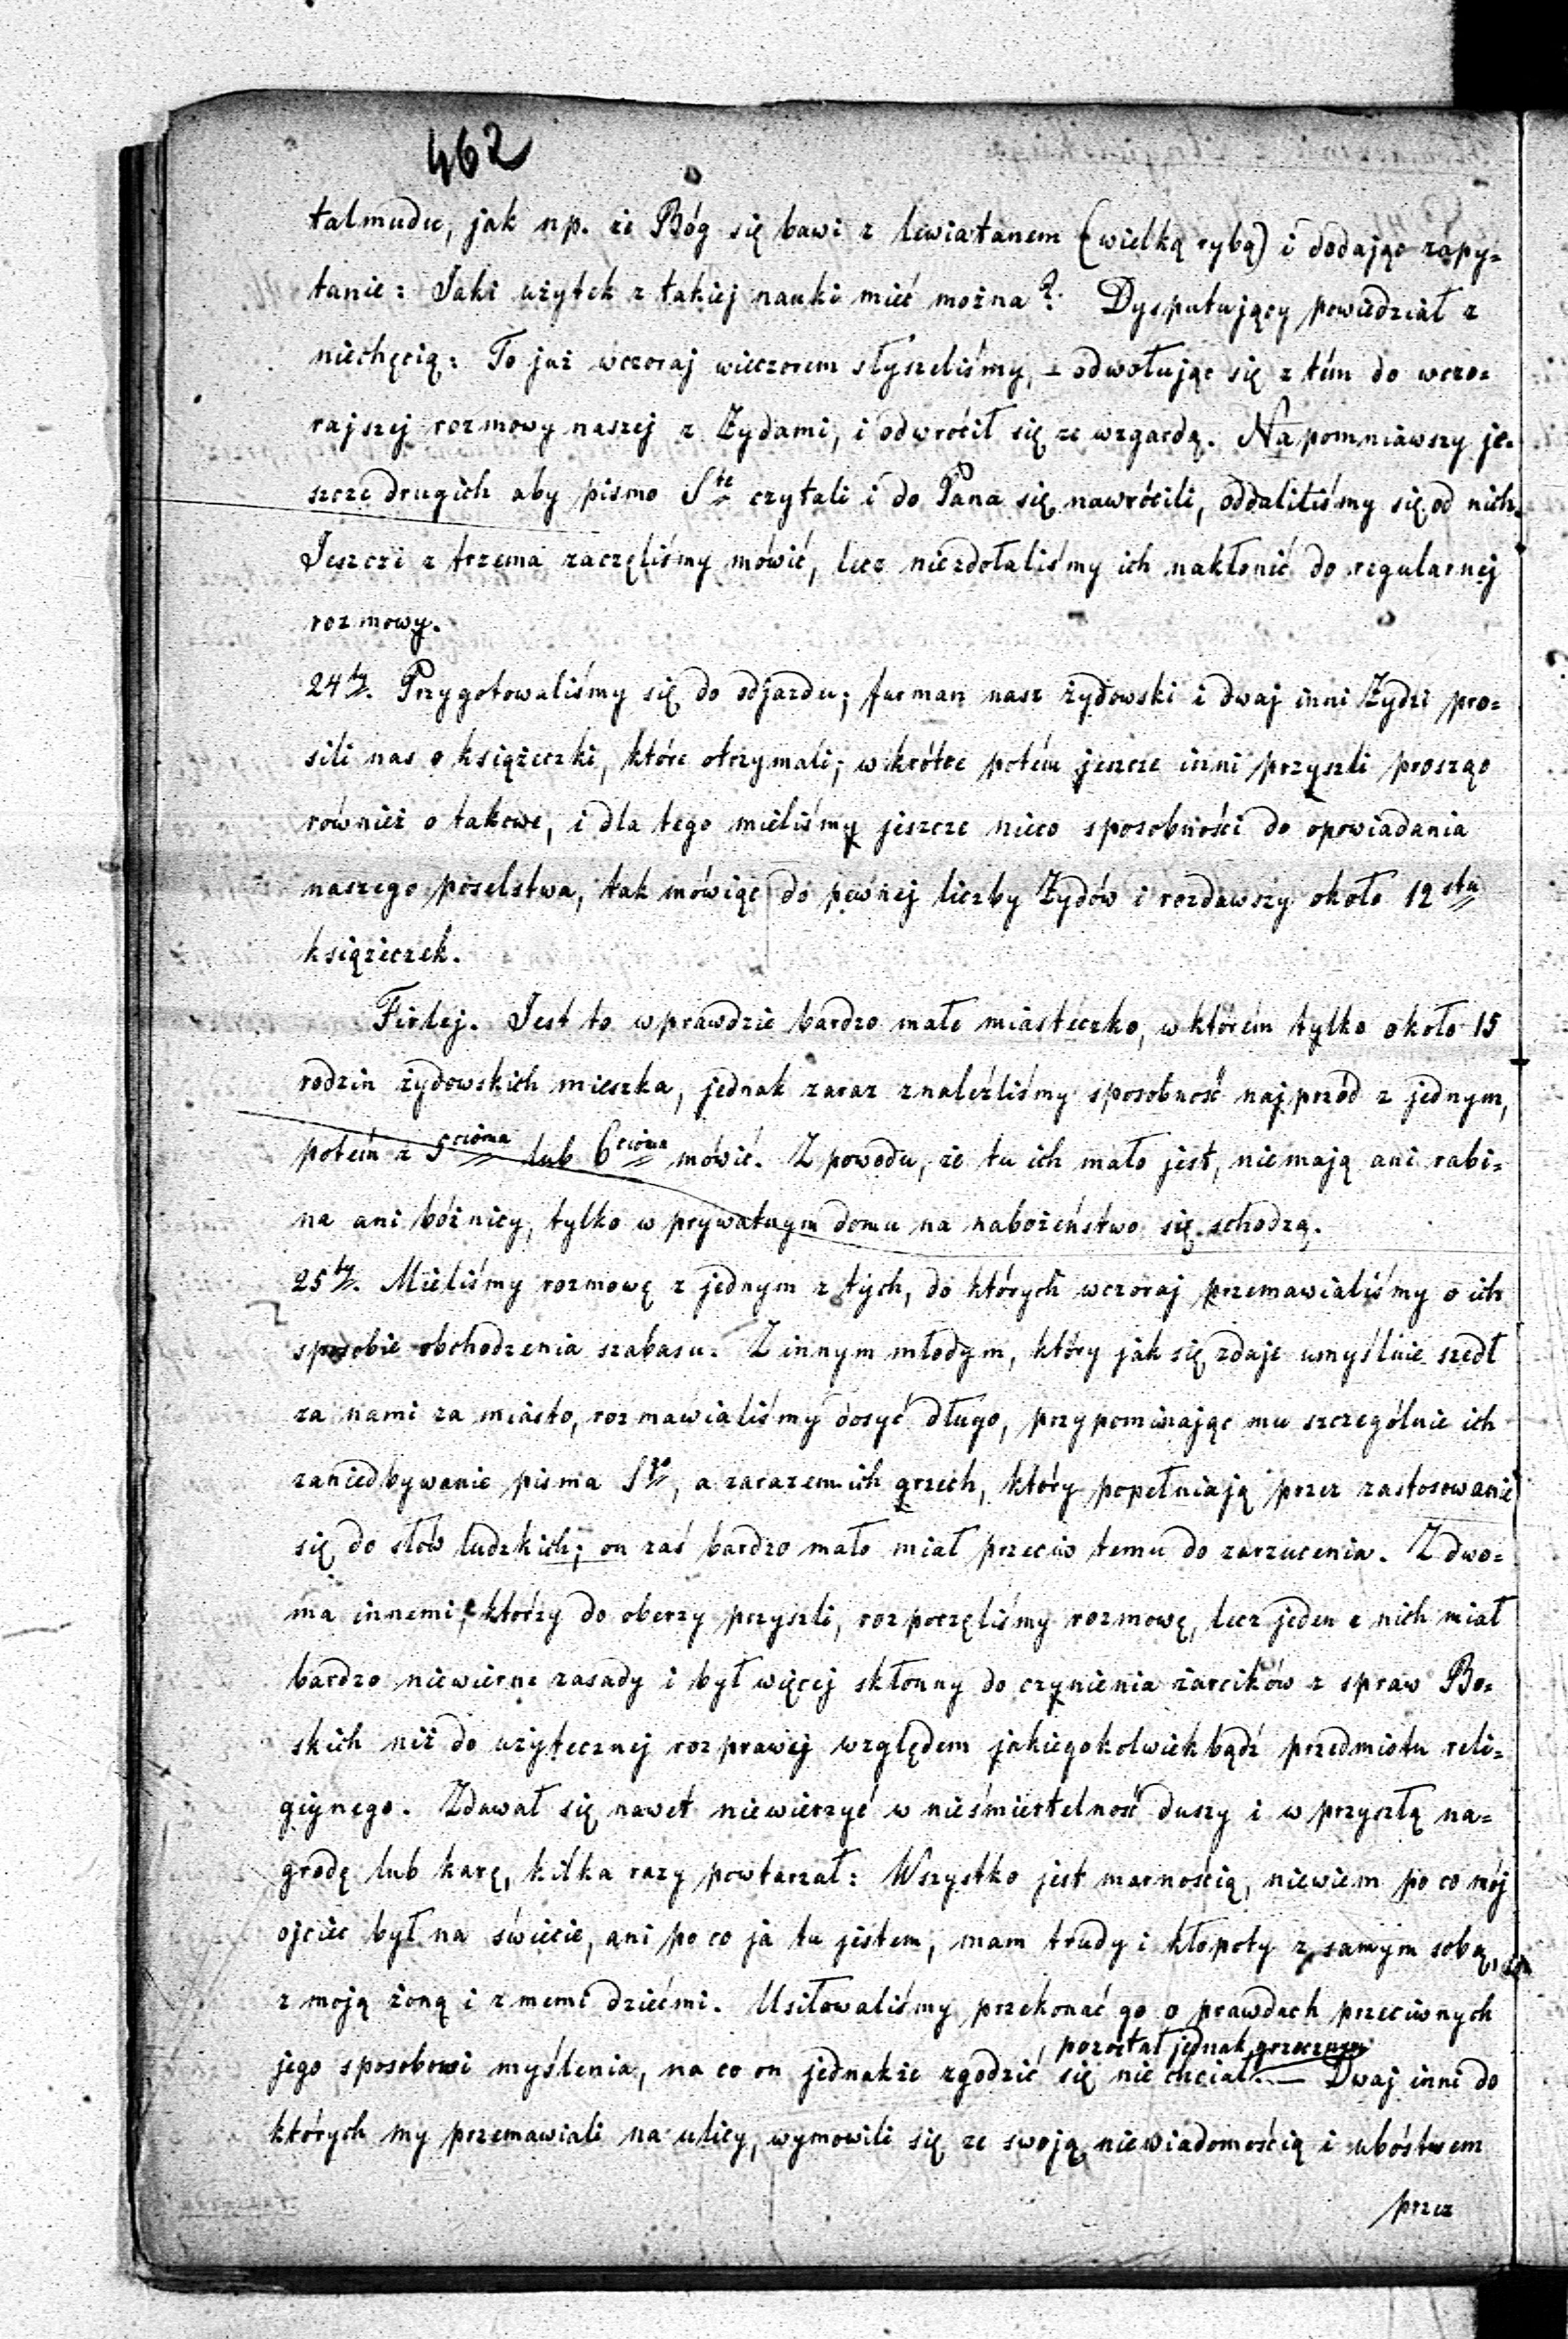 462
talmudu, jak np. że Bóg się bawi z lewiatanem (wielką rybą) i dodając zapy=
tanie: Jaki użytek z takiej nauki mieć można? Dysputujący powiedział z
niechęcią: To już wczoraj wieczorem słyszeliśmy, – odwołując się z tém do wczo=
rajszej rozmowy naszej z Żydami, i odwrócił się ze wzgardą. Napomniawszy je=
szcze drugich aby pismo Ste czytali i do Pana się nawrócili, oddaliliśmy się od nich.
Jeszcze z trzema zaczęliśmy mówić, lecz niezdołaliśmy ich nakłonić do regularnej
rozmowy.
24ty. Przygotowaliśmy się do odjazdu; furman nasz żydowski i dwaj inni Żydzi pro=
sili nas o książeczki, które otrzymali; wkrótce potém jeszcze inni przyszli prosząc
również o takowe, i dla tego mieliśmy jeszcze nieco sposobności do opowiadania
naszego poselstwa, tak mówiąc do pewnej liczby Żydów i rozdawszy około 12stu
książeczek.
Firlej. Jest to wprawdzie bardzo małe miasteczko, w którém tylko około 15
rodzin żydowskich mieszka, jednak zaraz znaleźliśmy sposobność najprzód z jednym,
potém z 5cioma lub 6cioma mówić. Z powodu, że tu ich mało jest, niemają ani rabi=
na ani bóżnicy, tylko w prywatnym domu na nabożeństwo się schodzą.
25ty. Mieliśmy rozmowę z jednym z tych, do których wczoraj przemawialiśmy o ich
sposobie obchodzenia szabasu. Z innym młodym, który jak się zdaje umyślnie szedł
za nami za miasto, rozmawialiśmy dosyć długo, przypominając mu szczególnie ich
zaniedbywanie pisma Sgo, a zarazem ich grzech, który popełniają przez zastosowanie
się do słów ludzkich; on zaś bardzo mało miał przeciw temu do zarzucenia. Z dwo=
ma innemi, którzy do oberzy przyszli, rozpoczęliśmy rozmowę, lecz jeden z nich miał
bardzo niewierne zasady i był więcej skłonny do czynienia żarcików z spraw Bo=
skich niż do użytecznej rozprawy względem jakiegokolwiekbądź przedmiotu reli=
gijnego. Zdawał się nawet niewierzyć w nieśmiertelność duszy i w przyszłą na=
grodę lub karę, kilka razy powtarzał: Wszystko jest marnością, niewiem po co mój
ojciec był na świecie, ani po co ja tu jestem, mam trudy i kłopoty z samym sobą,
z moją żoną i z memi dziećmi. Usiłowaliśmy przekonać go o prawdach przeciwnych
, pozostał jednak grzecznym
jego sposobowi myślenia, na co on jednakże zgodzić się nie chciał. — Dwaj inni do
których my przemawiali na ulicy, wymowili się ze swoją niewiadomością i ubóstwem
przez